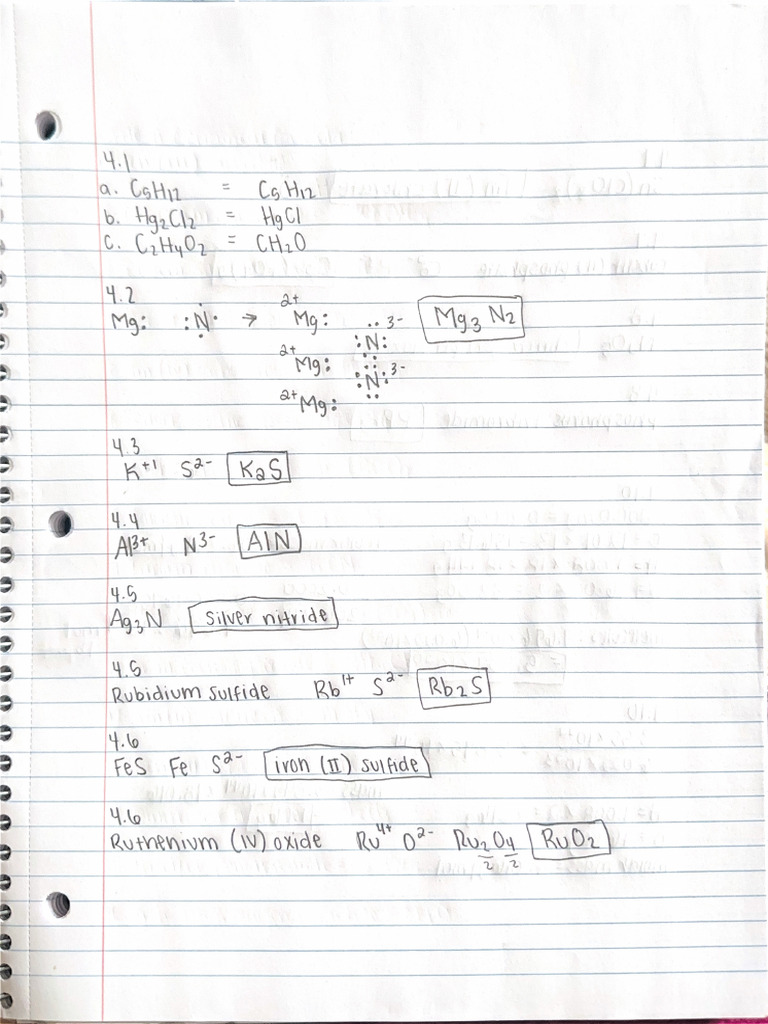 4.1
a. C5H12 = C5H12
b. Hg2Cl2 = HgCl
c. C2H4O2 = CH2O
4.2
Mg: :N· → 2+ Mg: :N: 3- Mg3 N2
2+ Mg: :N: 3-
2+ Mg:
4.3
K+1 S2- K2S
4.4
Al3+ N3- AlN
4.5
Ag3N silver nitride
4.5
Rubidium sulfide Rb1+ S2- Rb2S
4.6
FeS Fe S2- iron (II) sulfide
4.6
Ruthenium (IV) oxide Ru4+ O2- Ru2O4 RuO2
2 2